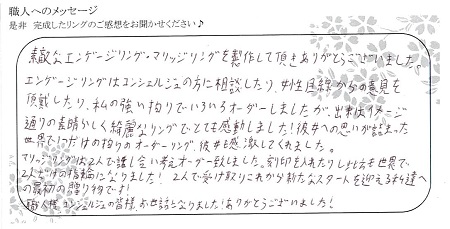 職人へのメッセージ
是非 完成したリングのご感想をお聞かせください♪
素敵なエンゲージリング・マリッジリングを製作して頂きありがとうございました。
エンゲージリングはコンシェルジュの方に相談したり、女性目線からの意見を
頂戴したり、私の強い拘りでいろいろオーダーしましたが、出来はイメージ
通りの素晴らしく綺麗なリングでとても感動しました！彼女への思いが詰まった
世界で1つだけの拘りのオーダーリング、彼女も感激してくれました。
マリッジリングは2人で話し合い考えオーダー致しました。刻印を入れたりし世界で
2人だけの指輪になりました！ 2人で受け取りこれから新たなスタートを迎える私達へ
の最初の贈り物です！
職人様、コンシェルジュの皆様、お世話となりました！ありがとうございました！